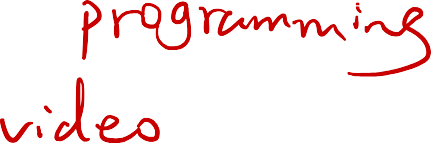 programming
video